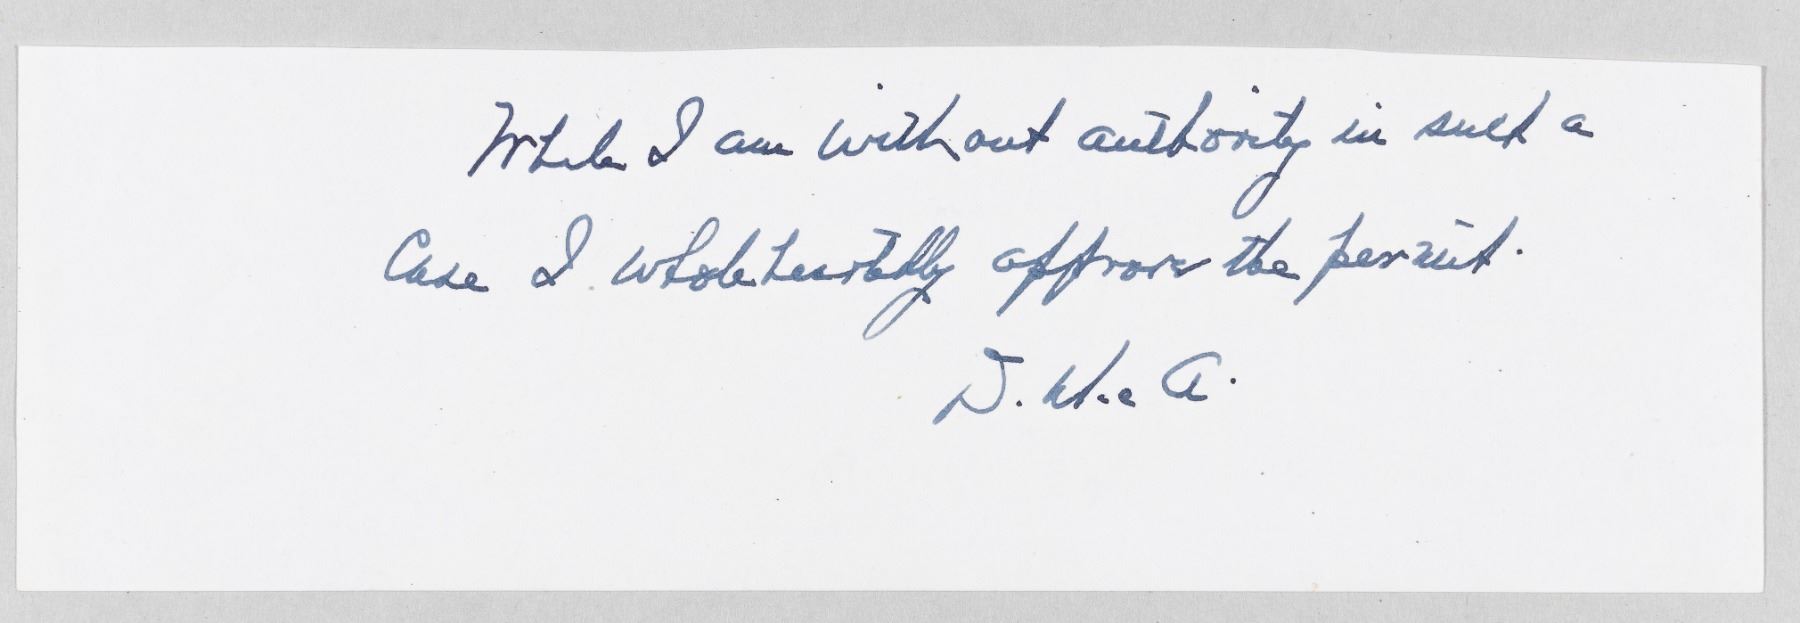 While I am without authority in such a
Case I wholeheartedly approve the permit.
D. MacA.